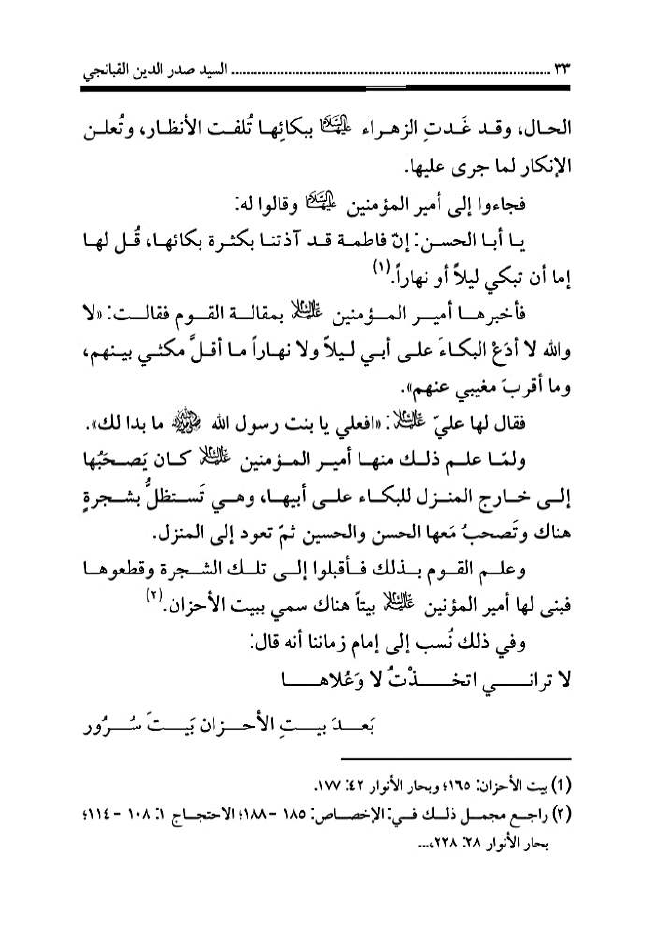 ٣٣ ........................................................................ السيد صدر الدين القبانجي
الحال، وقد غَدتِ الزهراء عليها السلام ببكائِها تُلفت الأنظار، وتُعلن
الإنكار لما جرى عليها.
فجاءوا إلى أمير المؤمنين عليه السلام وقالوا له:
يا أبا الحسن: إنّ فاطمة قد آذتنا بكثرة بكائها، قُل لها
إما أن تبكي ليلاً أو نهاراً.(١)
فأخبرها أمير المؤمنين عليه السلام بمقالة القوم فقالت: «لا
والله لا أدَعْ البكاءَ على أبي ليلاً ولا نهاراً ما أقلَّ مكثي بينهم،
وما أقربَ مغيبي عنهم».
فقال لها عليّ عليه السلام: «افعلي يا بنت رسول الله صلى الله عليه وآله ما بدا لك».
ولمّا علم ذلك منها أمير المؤمنين عليه السلام كان يَصحَبُها
إلى خارج المنزل للبكاء على أبيها، وهي تَستظلُّ بشجرةٍ
هناك وتَصحبُ مَعها الحسن والحسين ثمّ تعود إلى المنزل.
وعلم القوم بذلك فأقبلوا إلى تلك الشجرة وقطعوها
فبنى لها أمير المؤنين عليه السلام بيتاً هناك سمي ببيت الأحزان.(٢)
وفي ذلك نُسب إلى إمام زماننا أنه قال:
لا تراني اتخذْتُ لا وَعُلاها
بَعدَ بيتِ الأحزان بَيتَ سُرور
(١) بيت الأحزان: ١٦٥؛ وبحار الأنوار ٤٢: ١٧٧.
(٢) راجع مجمل ذلك في: الإخصاص: ١٨٥ - ١٨٨؛ الاحتجاج ١: ١٠٨ - ١١٤؛
بحار الأنوار ٢٨: ٢٢٨،...